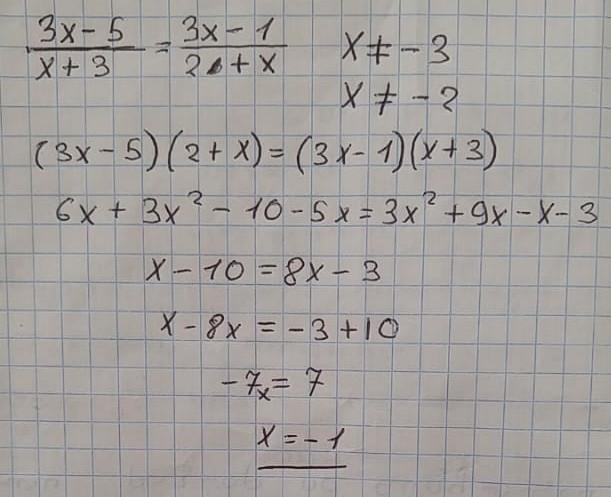 (3x-5)/(x+3) = (3x-1)/(2+x)   x ≠ -3
x ≠ -2
(3x-5)(2+x)=(3x-1)(x+3)
6x+3x²-10-5x=3x²+9x-x-3
x-10=8x-3
x-8x=-3+10
-7x=7
x=-1